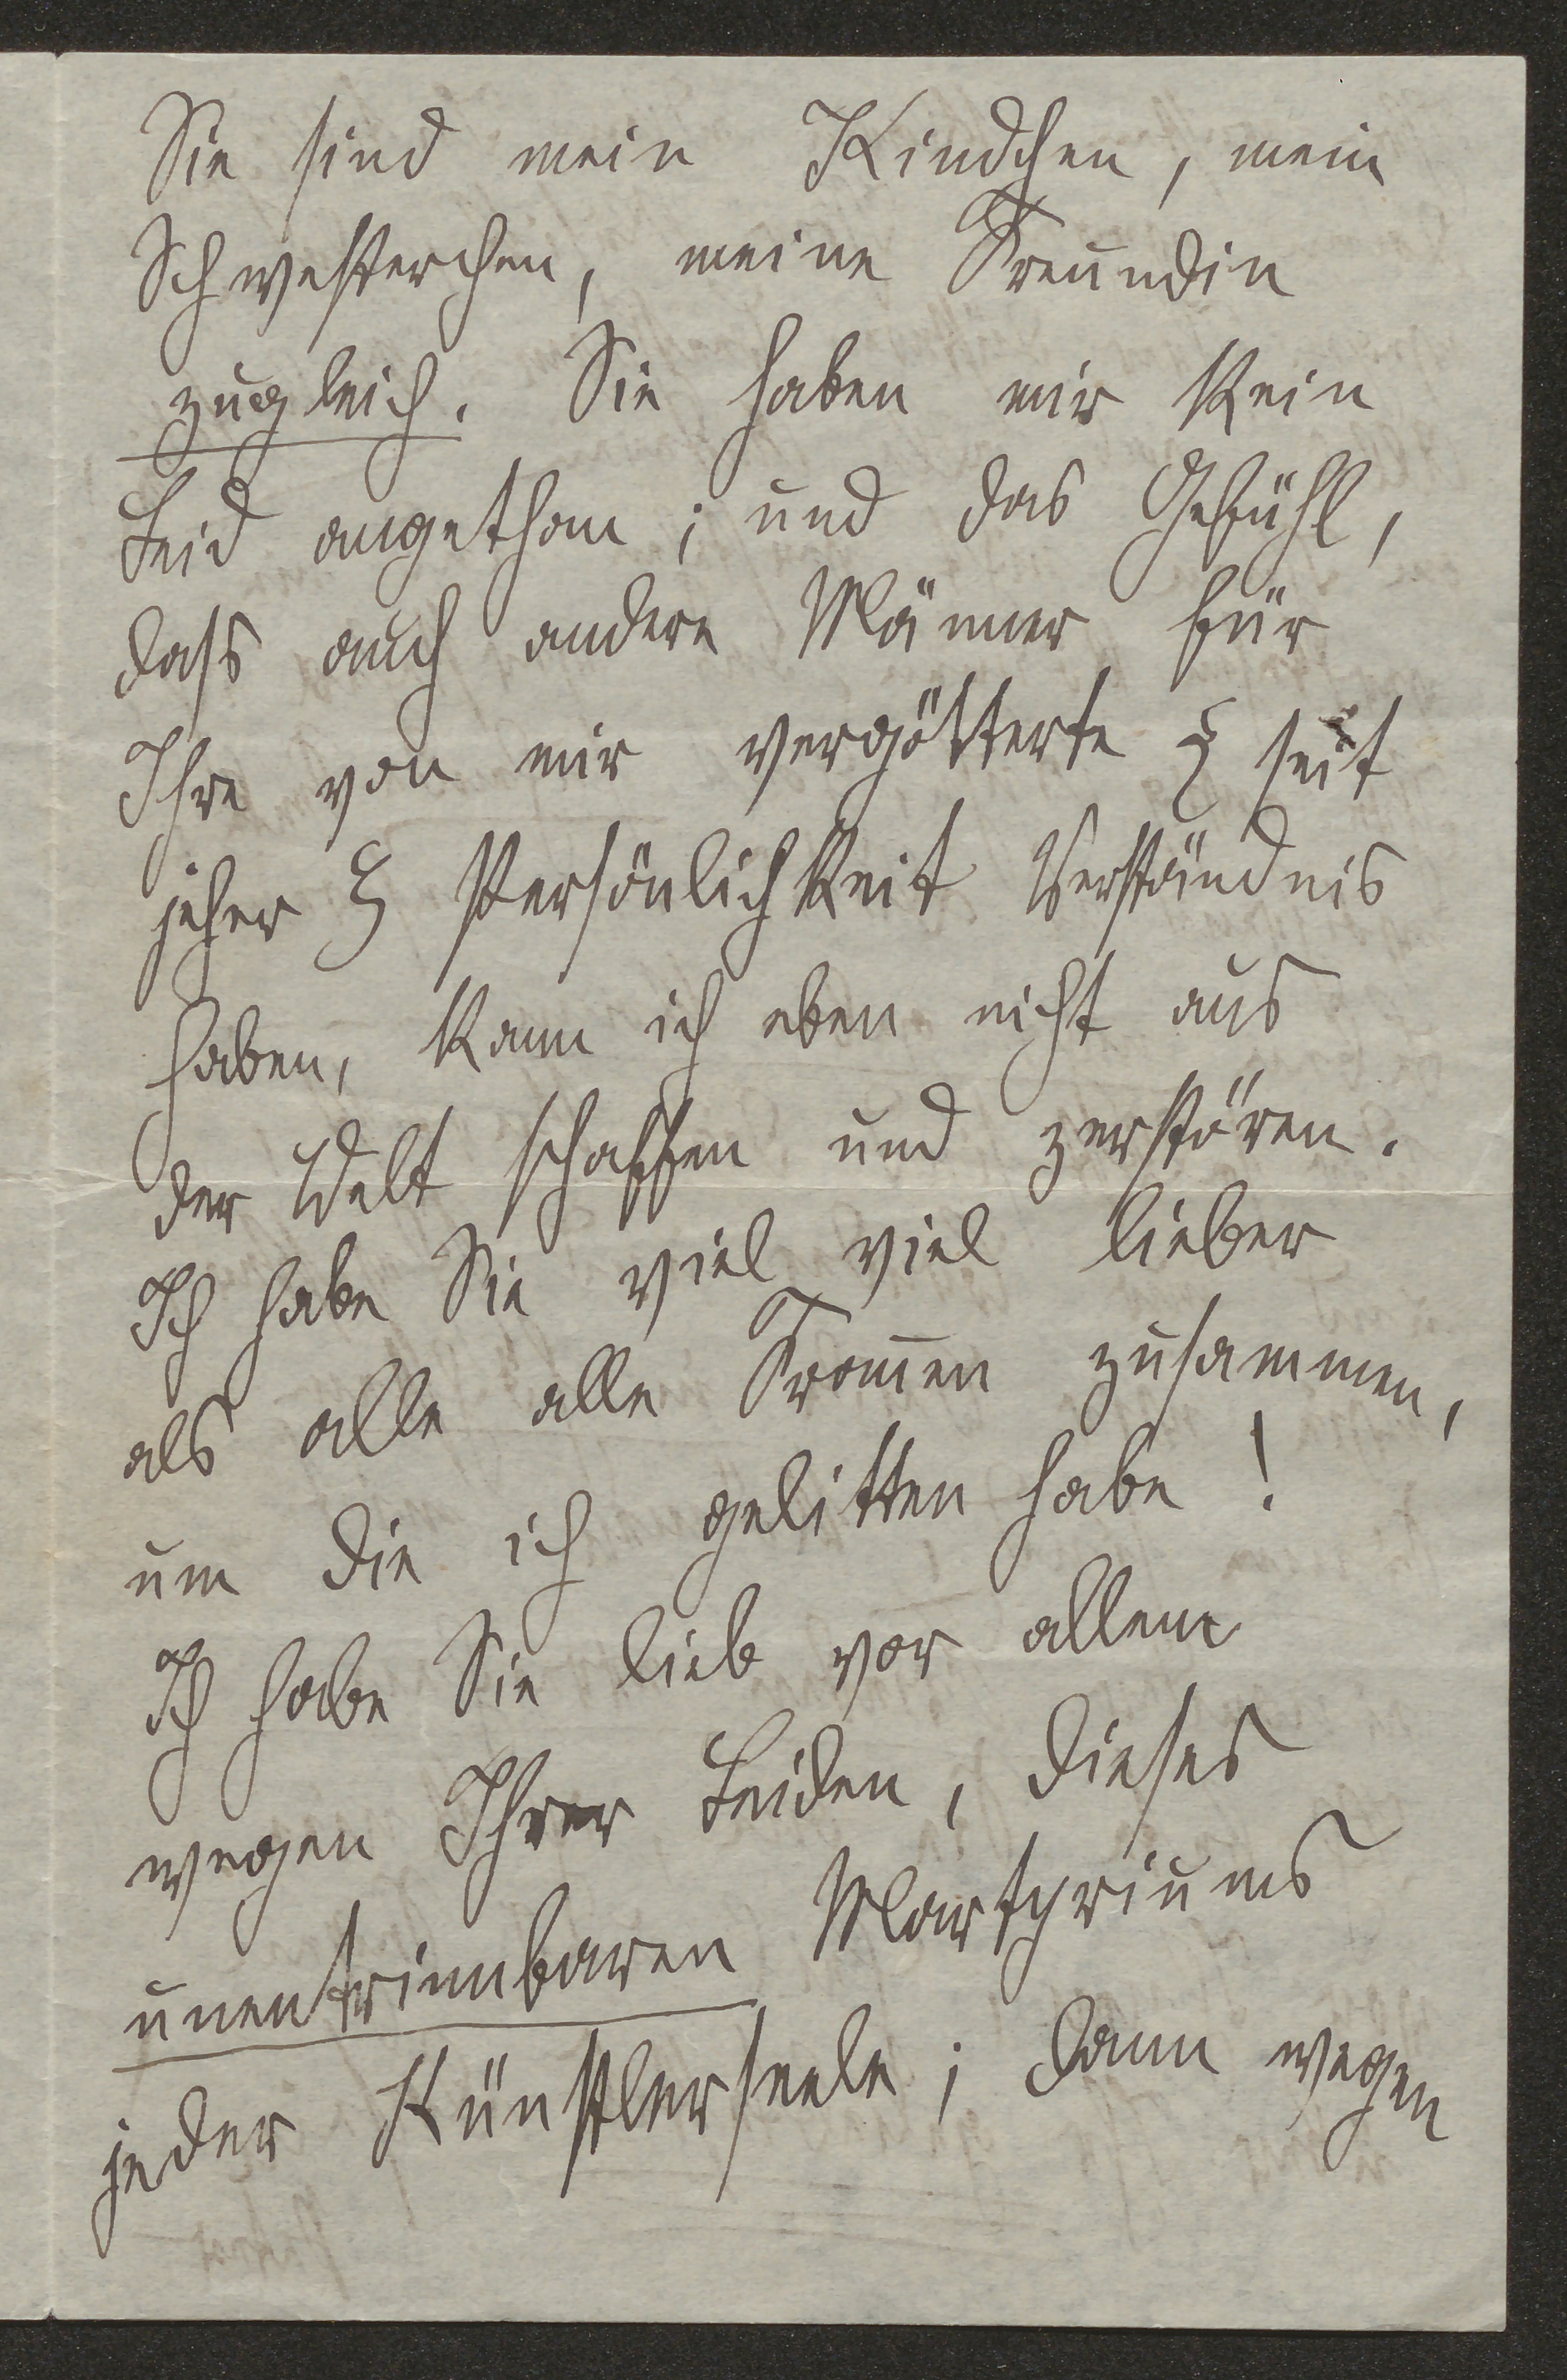 Sie sind mein Kindchen, mein
Schwesterchen, meine Freundin
zugleich. Sie haben mir kein
Leid angethan; und das Gefühl,
dass auch andere Männer für
Ihre von mir vergötterte { seit
jeher } Persönlichkeit Verständnis
haben, kann ich eben nicht aus
der Welt schaffen und zerstören.
Ich habe Sie viel viel lieber
als alle alle Frauen zusammen,
um die ich gelitten habe!
Ich habe Sie lieb vor allem
wegen Ihrer Leiden, dieses
unentrinnbaren Martyriums
jeder Künstlerseele; dann wegen